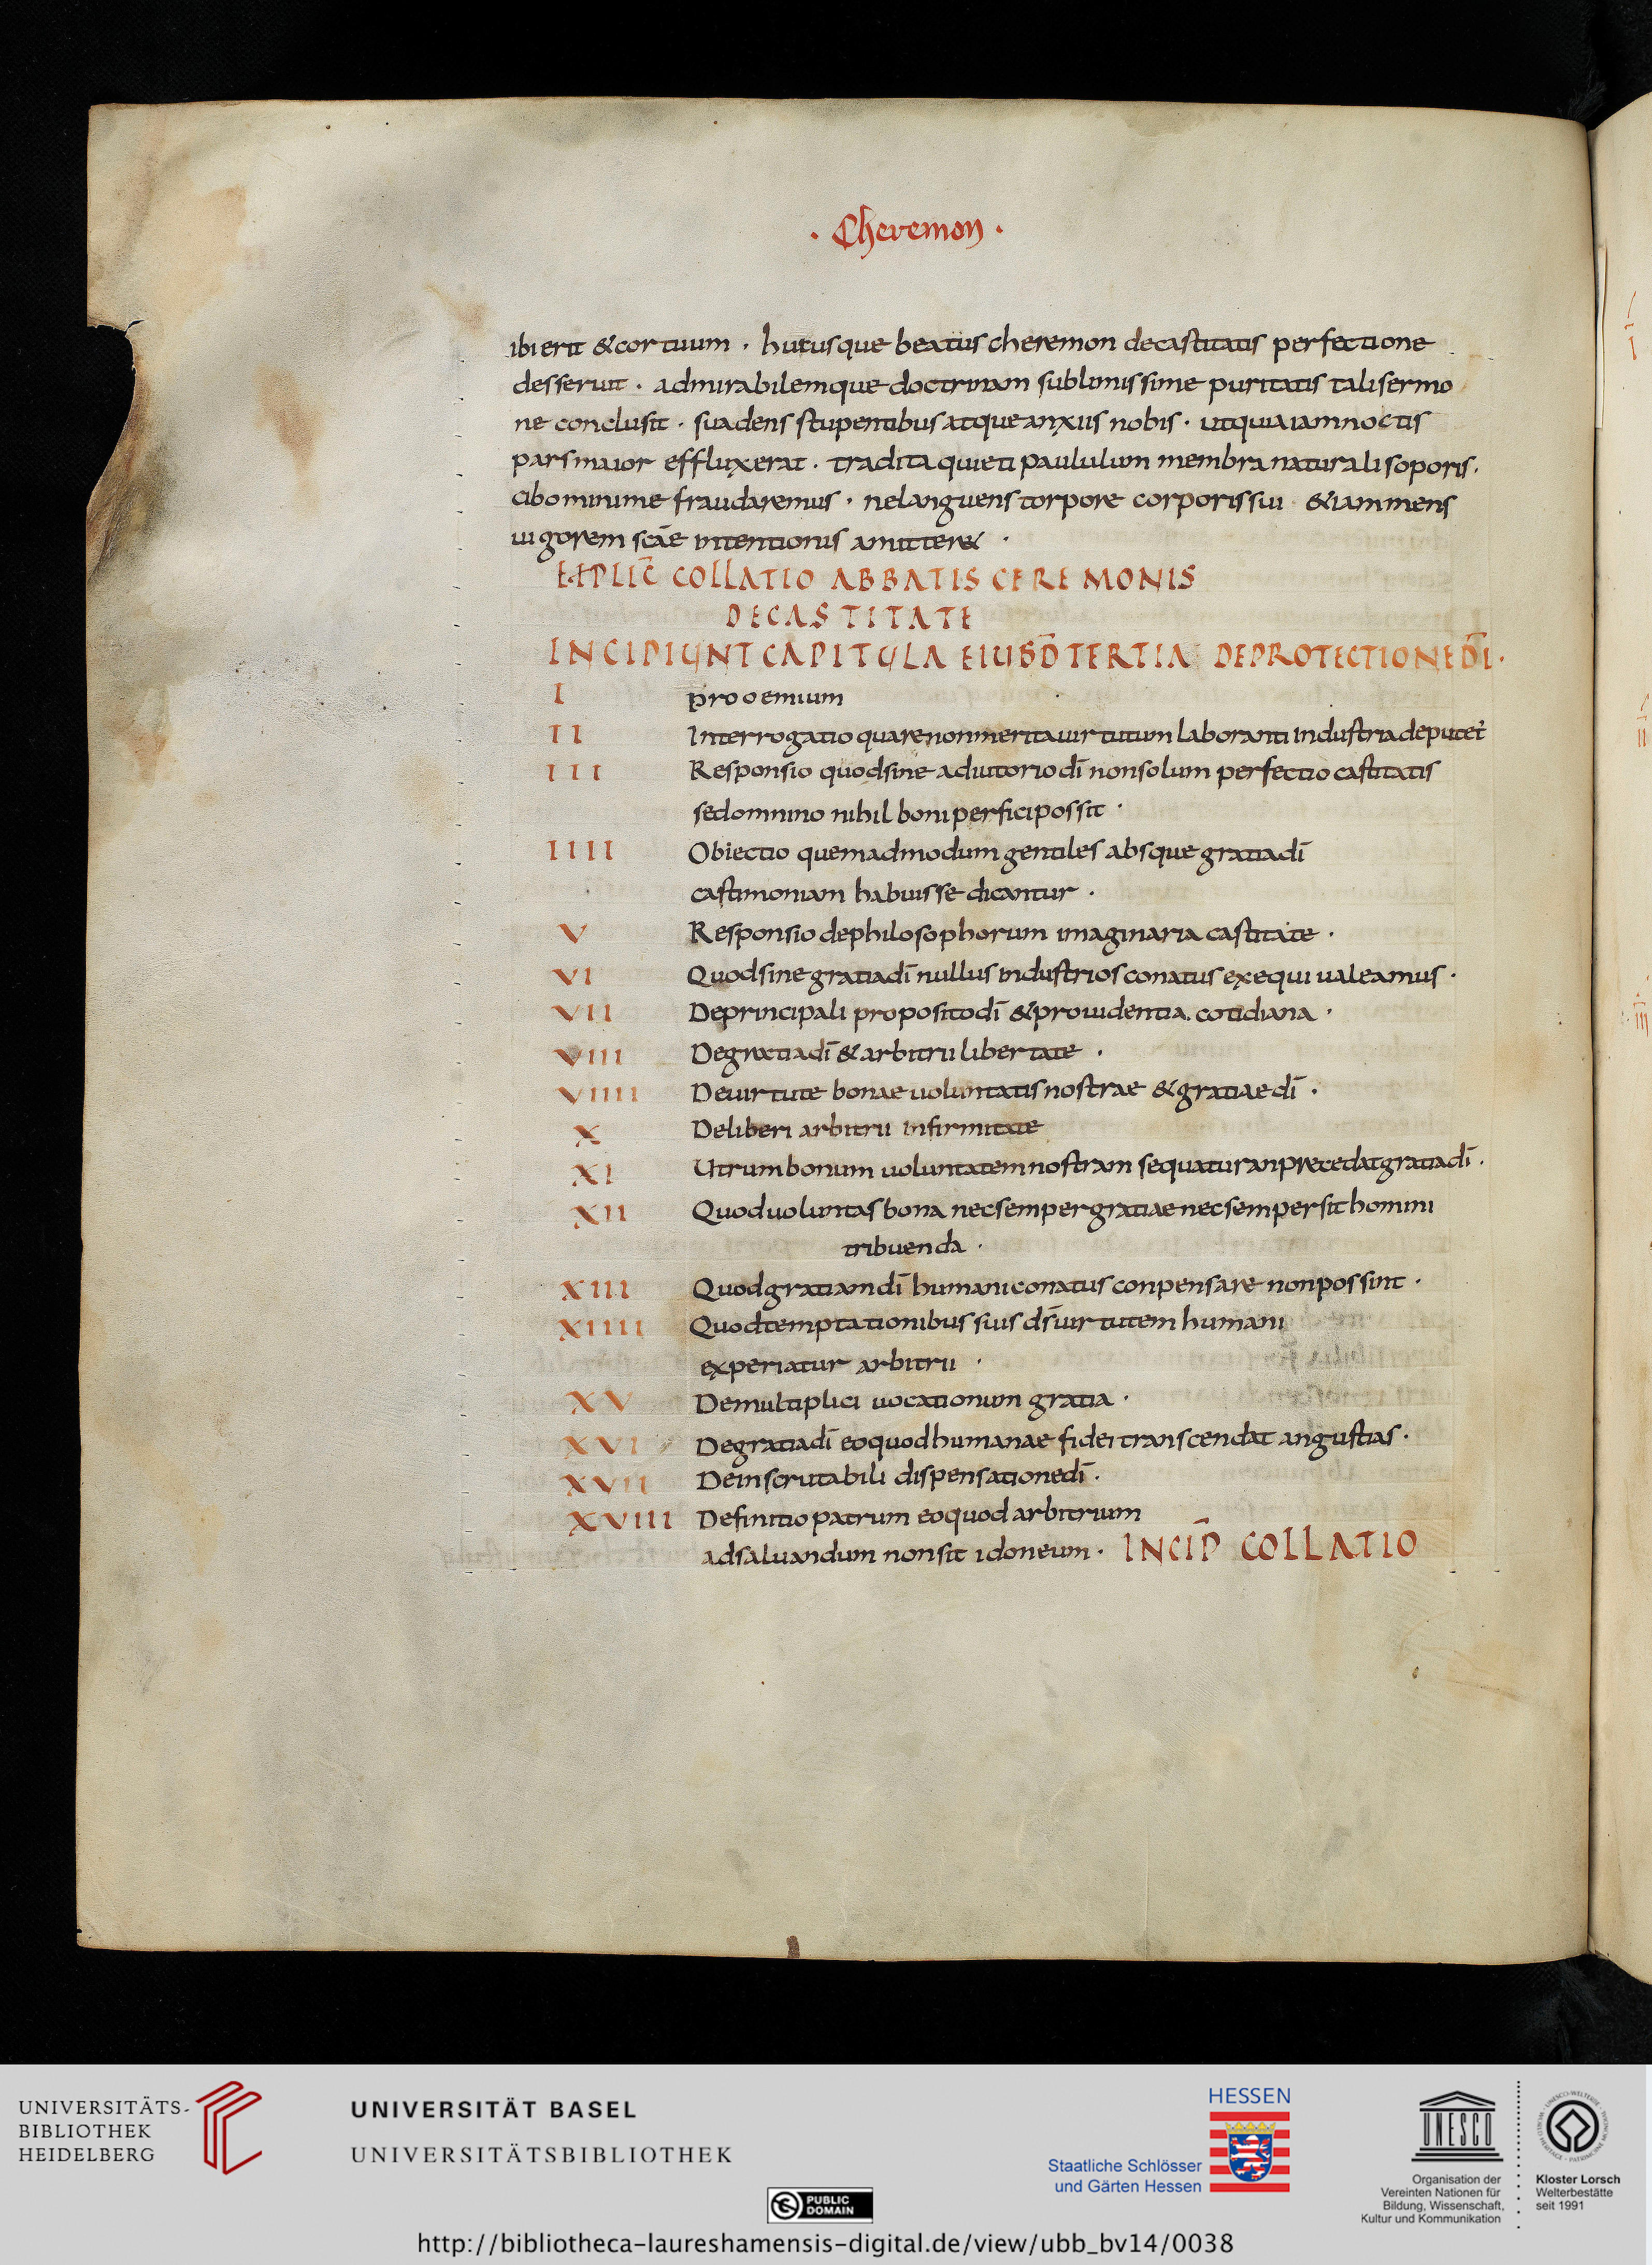 · Cheremon ·
ibi erit & cor tuum · hucusque beatus cheremon de castitatis perfectione
desseruit · admirabilemque doctrinam sublimissime puritatis tali sermo
ne conclusit · suadens stupentibus atque anxiis nobis · ut quia iam noctis
pars maior effluxerat · tradita quieti paululum membra naturali soporis ·
cibo minime fraudaremus · ne languens torpore corporis sui & iam mens
uigorem scāe intentionis amitter& ·
EXPLIC̄ COLLATIO ABBATIS CEREMONIS
DE CASTITATE
INCIPIUNT CAPITULA EIUSD̄ TERTIA DE PROTECTIONE D̄I ·
I prooemium
II Interrogatio quare non merita uirtutum laboranti industria deputet̄
III Responsio quod sine adiutorio dī non solum perfectio castitatis
sed omnino nihil boni perfici possit ·
IIII Obiectio quemadmodum gentiles absque gratia dī
castimoniam habuisse dicantur ·
V Responsio de philosophorum imaginaria castitate ·
VI Quod sine gratia dī nullus industrios conatus exequi ualeamus ·
VII De principali proposito dī & prouidentia cotidiana ·
VIII De gratia dī & arbitrii libertate ·
VIIII De uirtute bonae uoluntatis nostrae & gratiae dī ·
X De liberi arbitrii infirmitate
XI Utrum bonum uoluntatem nostram sequatur an precedat gratia dī ·
XII Quod uoluntas bona nec semper gratiae nec semper sit homini
tribuenda ·
XIII Quod gratiam dī humani conatus conpensare non possint ·
XIIII Quod temptationibus suis ds̄ uirtutem humani
experiatur arbitrii ·
XV De multiplici uocationum gratia ·
XVI De gratia dī eo quod humanae fidei transcendat angustias ·
XVII De inscrutabili dispensatione dī ·
XVIII Definitio patrum eo quod arbitrium
ad saluandum non sit idoneum · INCIP̄ COLLATIO
UNIVERSITÄTS-
BIBLIOTHEK
HEIDELBERG
UNIVERSITÄT BASEL
UNIVERSITÄTSBIBLIOTHEK
PUBLIC
DOMAIN
HESSEN
Staatliche Schlösser
und Gärten Hessen
UNESCO
Organisation der
Vereinten Nationen für
Bildung, Wissenschaft,
Kultur und Kommunikation
Kloster Lorsch
Welterbestätte
seit 1991
http://bibliotheca-laureshamensis-digital.de/view/ubb_bv14/0038